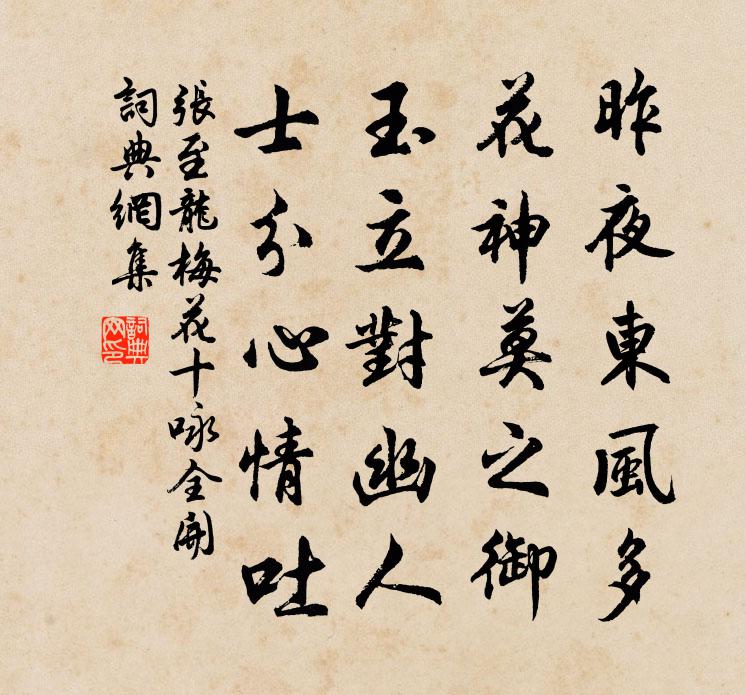 昨夜東風多
花神莫之御
玉立對幽人
士分心情吐
張至龍梅花十咏全開
詞典網集
詞典網印